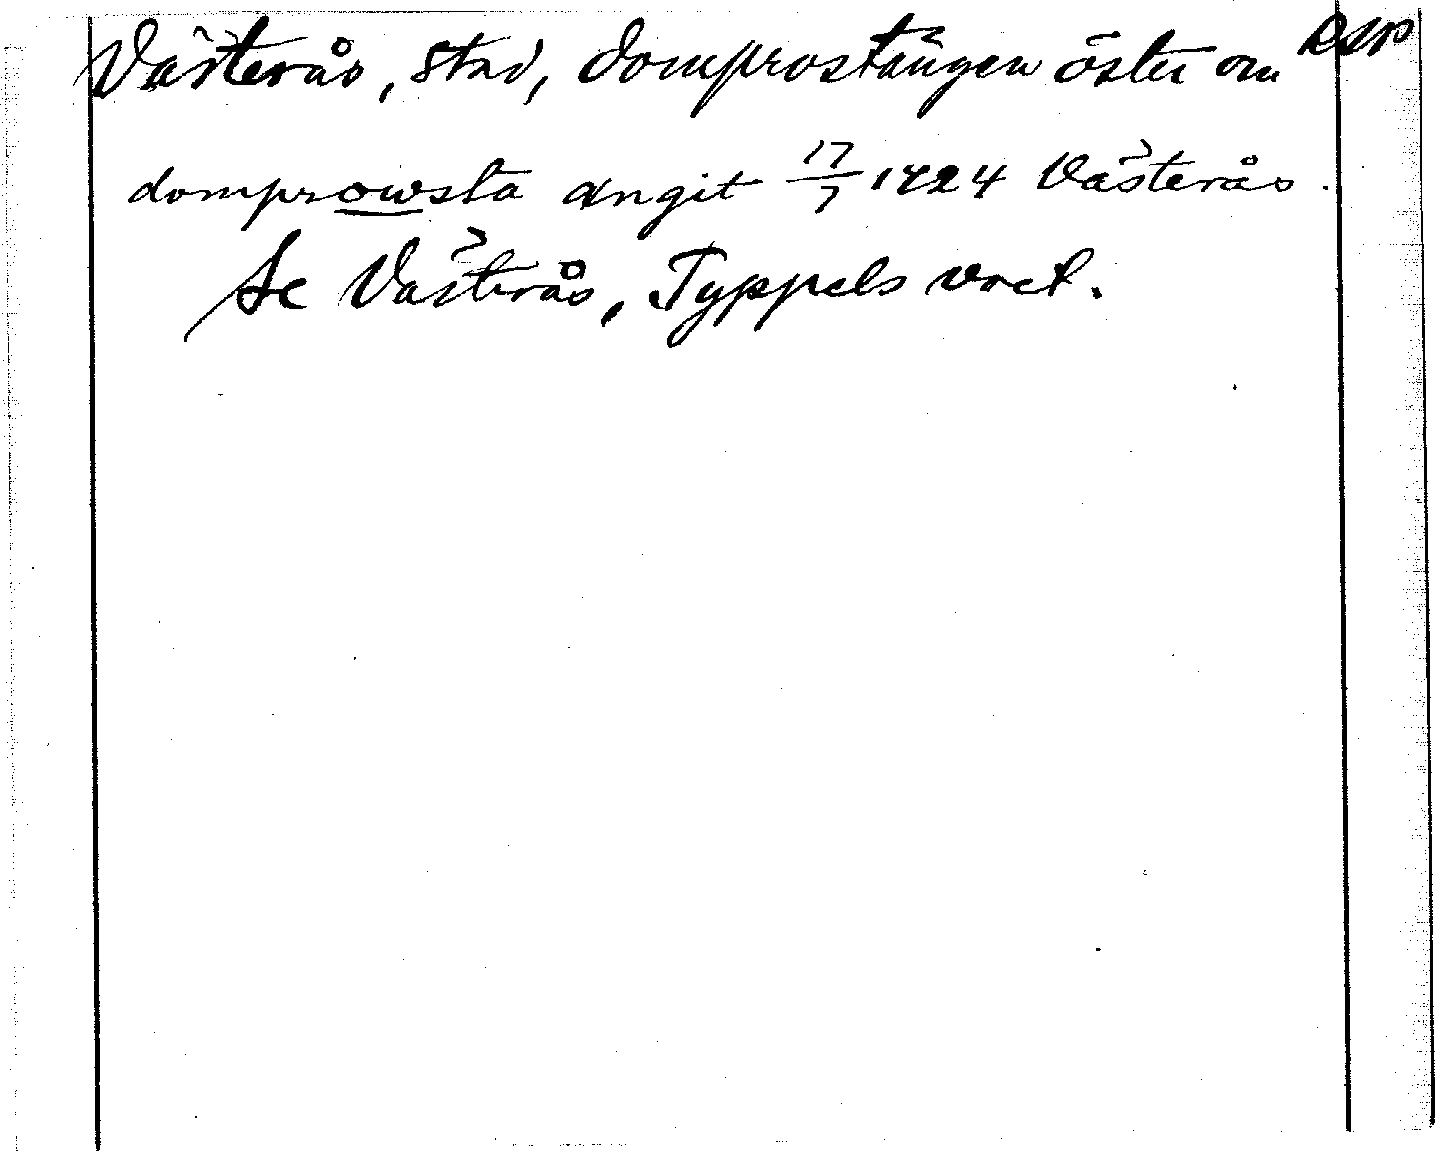 Västerås, stad, domprostängen öster om
domprowsta ængit 17/7 1424 Västerås.
Se Västerås, Typpels vret.